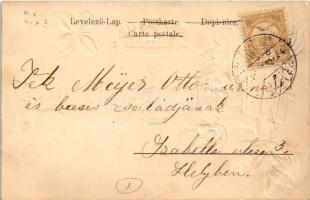 Levelező-Lap. — Postkarte — Dopisnice.
Carte postale.
Tek Meijer Ottó úrnak
és becses családjának
Izabella utcza 3.
Helyben.